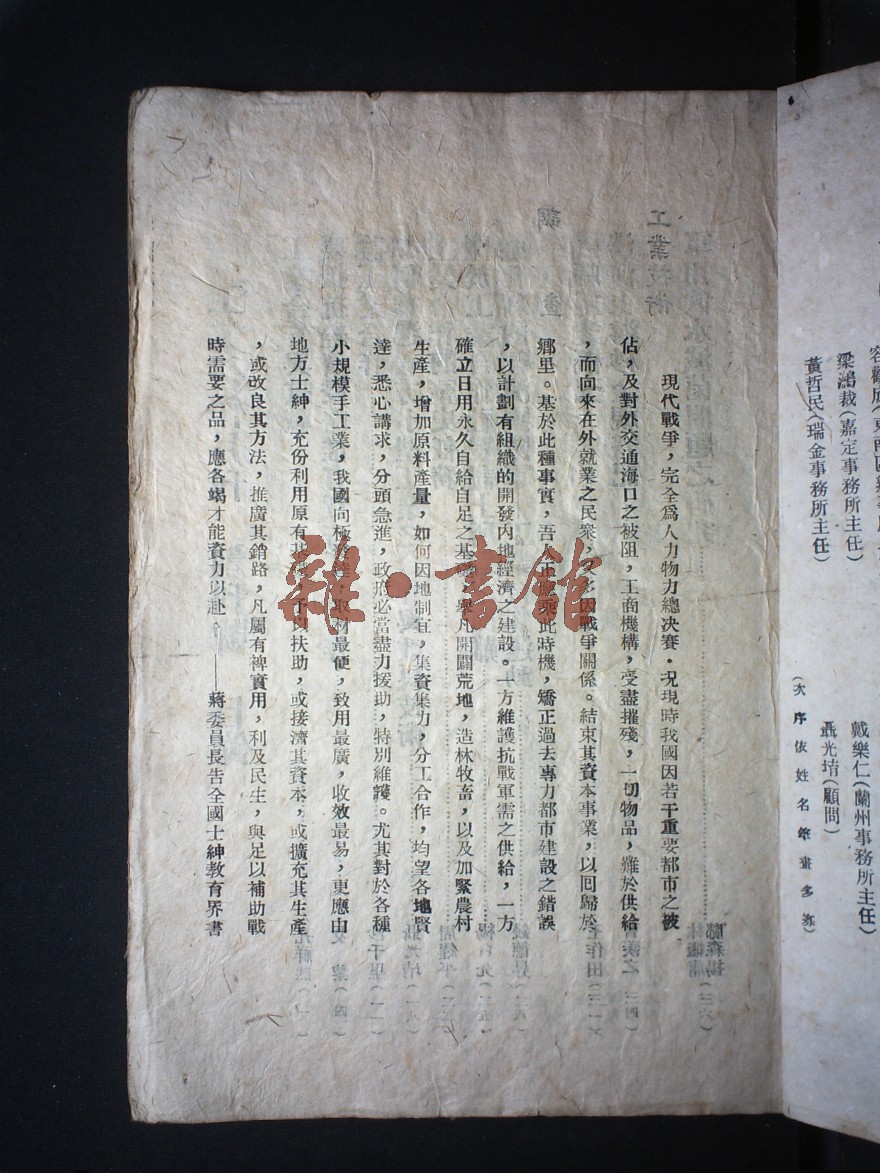 容
梁鴻裁（嘉定事務所主任）
黃哲民（瑞金事務所主任）
戴樂仁（蘭州事務所主任）
聶光堉（顧問）
（次序依姓名筆畫多寡）
現代戰爭，完全爲人力物力總決賽．況現時我國因若干重要都市之被
佔，及對外交通海口之被阻，工商機構，受盡摧殘，一切物品，難於供給
，而向來在外就業之民衆，多因戰爭關係。結束其資本事業，以囘歸於
鄉里。基於此種事實，吾人正應乘此時機，矯正過去專力都市建設之錯誤
，以計劃有組織的開發內地經濟之建設。一方維護抗戰軍需之供給，一方
確立日用永久自給自足之基礎，舉凡開闢荒地，造林牧畜，以及加緊農村
生產，增加原料產量，如何因地制宜，集資集力，分工合作，均望各地賢
達，悉心講求，分頭急進，政府必當盡力援助，特別維護。尤其對於各種
小規模手工業，我國向極發達，取材最便，致用最廣，收效最易，更應由
地方士紳，充份利用原有基礎，予以扶助，或接濟其資本，或擴充其生產
，或改良其方法，推廣其銷路，凡屬有裨實用，利及民生，與足以補助戰
時需要之品，應各竭才能資力以赴。——蔣委員長告全國士紳教育界書
雜·書館